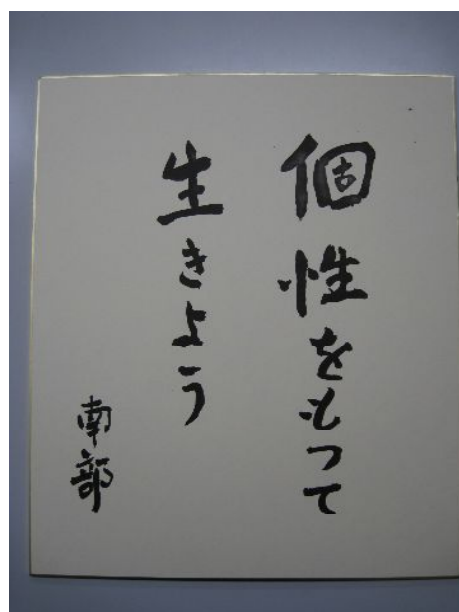 個性をもって
生きよう
南部